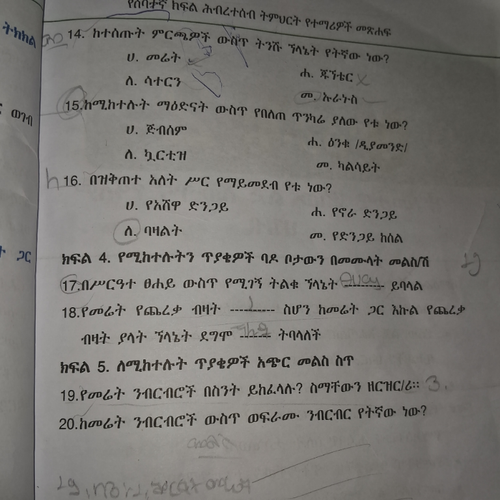 የሰባተኛ ክፍል ሕብረተሰብ ትምህርት የተማሪዎች መጽሐፍ
14. ከተሰጡት ምርጫዎች ውስጥ ትንሹ ኘላኔት የትኛው ነው?
ሀ. መሬት
ሐ. ጁፒተር
ለ. ሳተርን
መ. ኡራኑስ
15.ከሚከተሉት ማዕድናት ውስጥ የበለጠ ጥንካሬ ያለው የቱ ነው?
ሀ. ጅብሰም
ሐ. ዕንቁ /ዲያመንድ/
ለ. ኳርቲዝ
መ. ካልሳይት
16. በዝቅጠተ አለት ሥር የማይመደብ የቱ ነው?
ሀ. የአሸዋ ድንጋይ
ሐ. የኖራ ድንጋይ
ለ. ባዛልት
መ. የድንጋይ ከሰል
ክፍል 4. የሚከተሉትን ጥያቄዎች ባዶ ቦታውን በመሙላት መልስ/ሽ
17.በሥርዓተ ፀሐይ ውስጥ የሚገኝ ትልቁ ኘላኔት ---------- ይባላል
18.የመሬት የጨረቃ ብዛት ---------- ሲሆን ከመሬት ጋር እኩል የጨረቃ
ብዛት ያላት ኘላኔት ደግሞ ------- ትባላለች
ክፍል 5. ለሚከተሉት ጥያቄዎች አጭር መልስ ስጥ
19.የመሬት ንብርብሮች በስንት ይከፈላሉ? ስማቸውን ዘርዝር/ሪ። 3.
20.ከመሬት ንብርብሮች ውስጥ ወፍራሙ ንብርብር የትኛው ነው?
ትክክል
ወገብ
ት ጋር